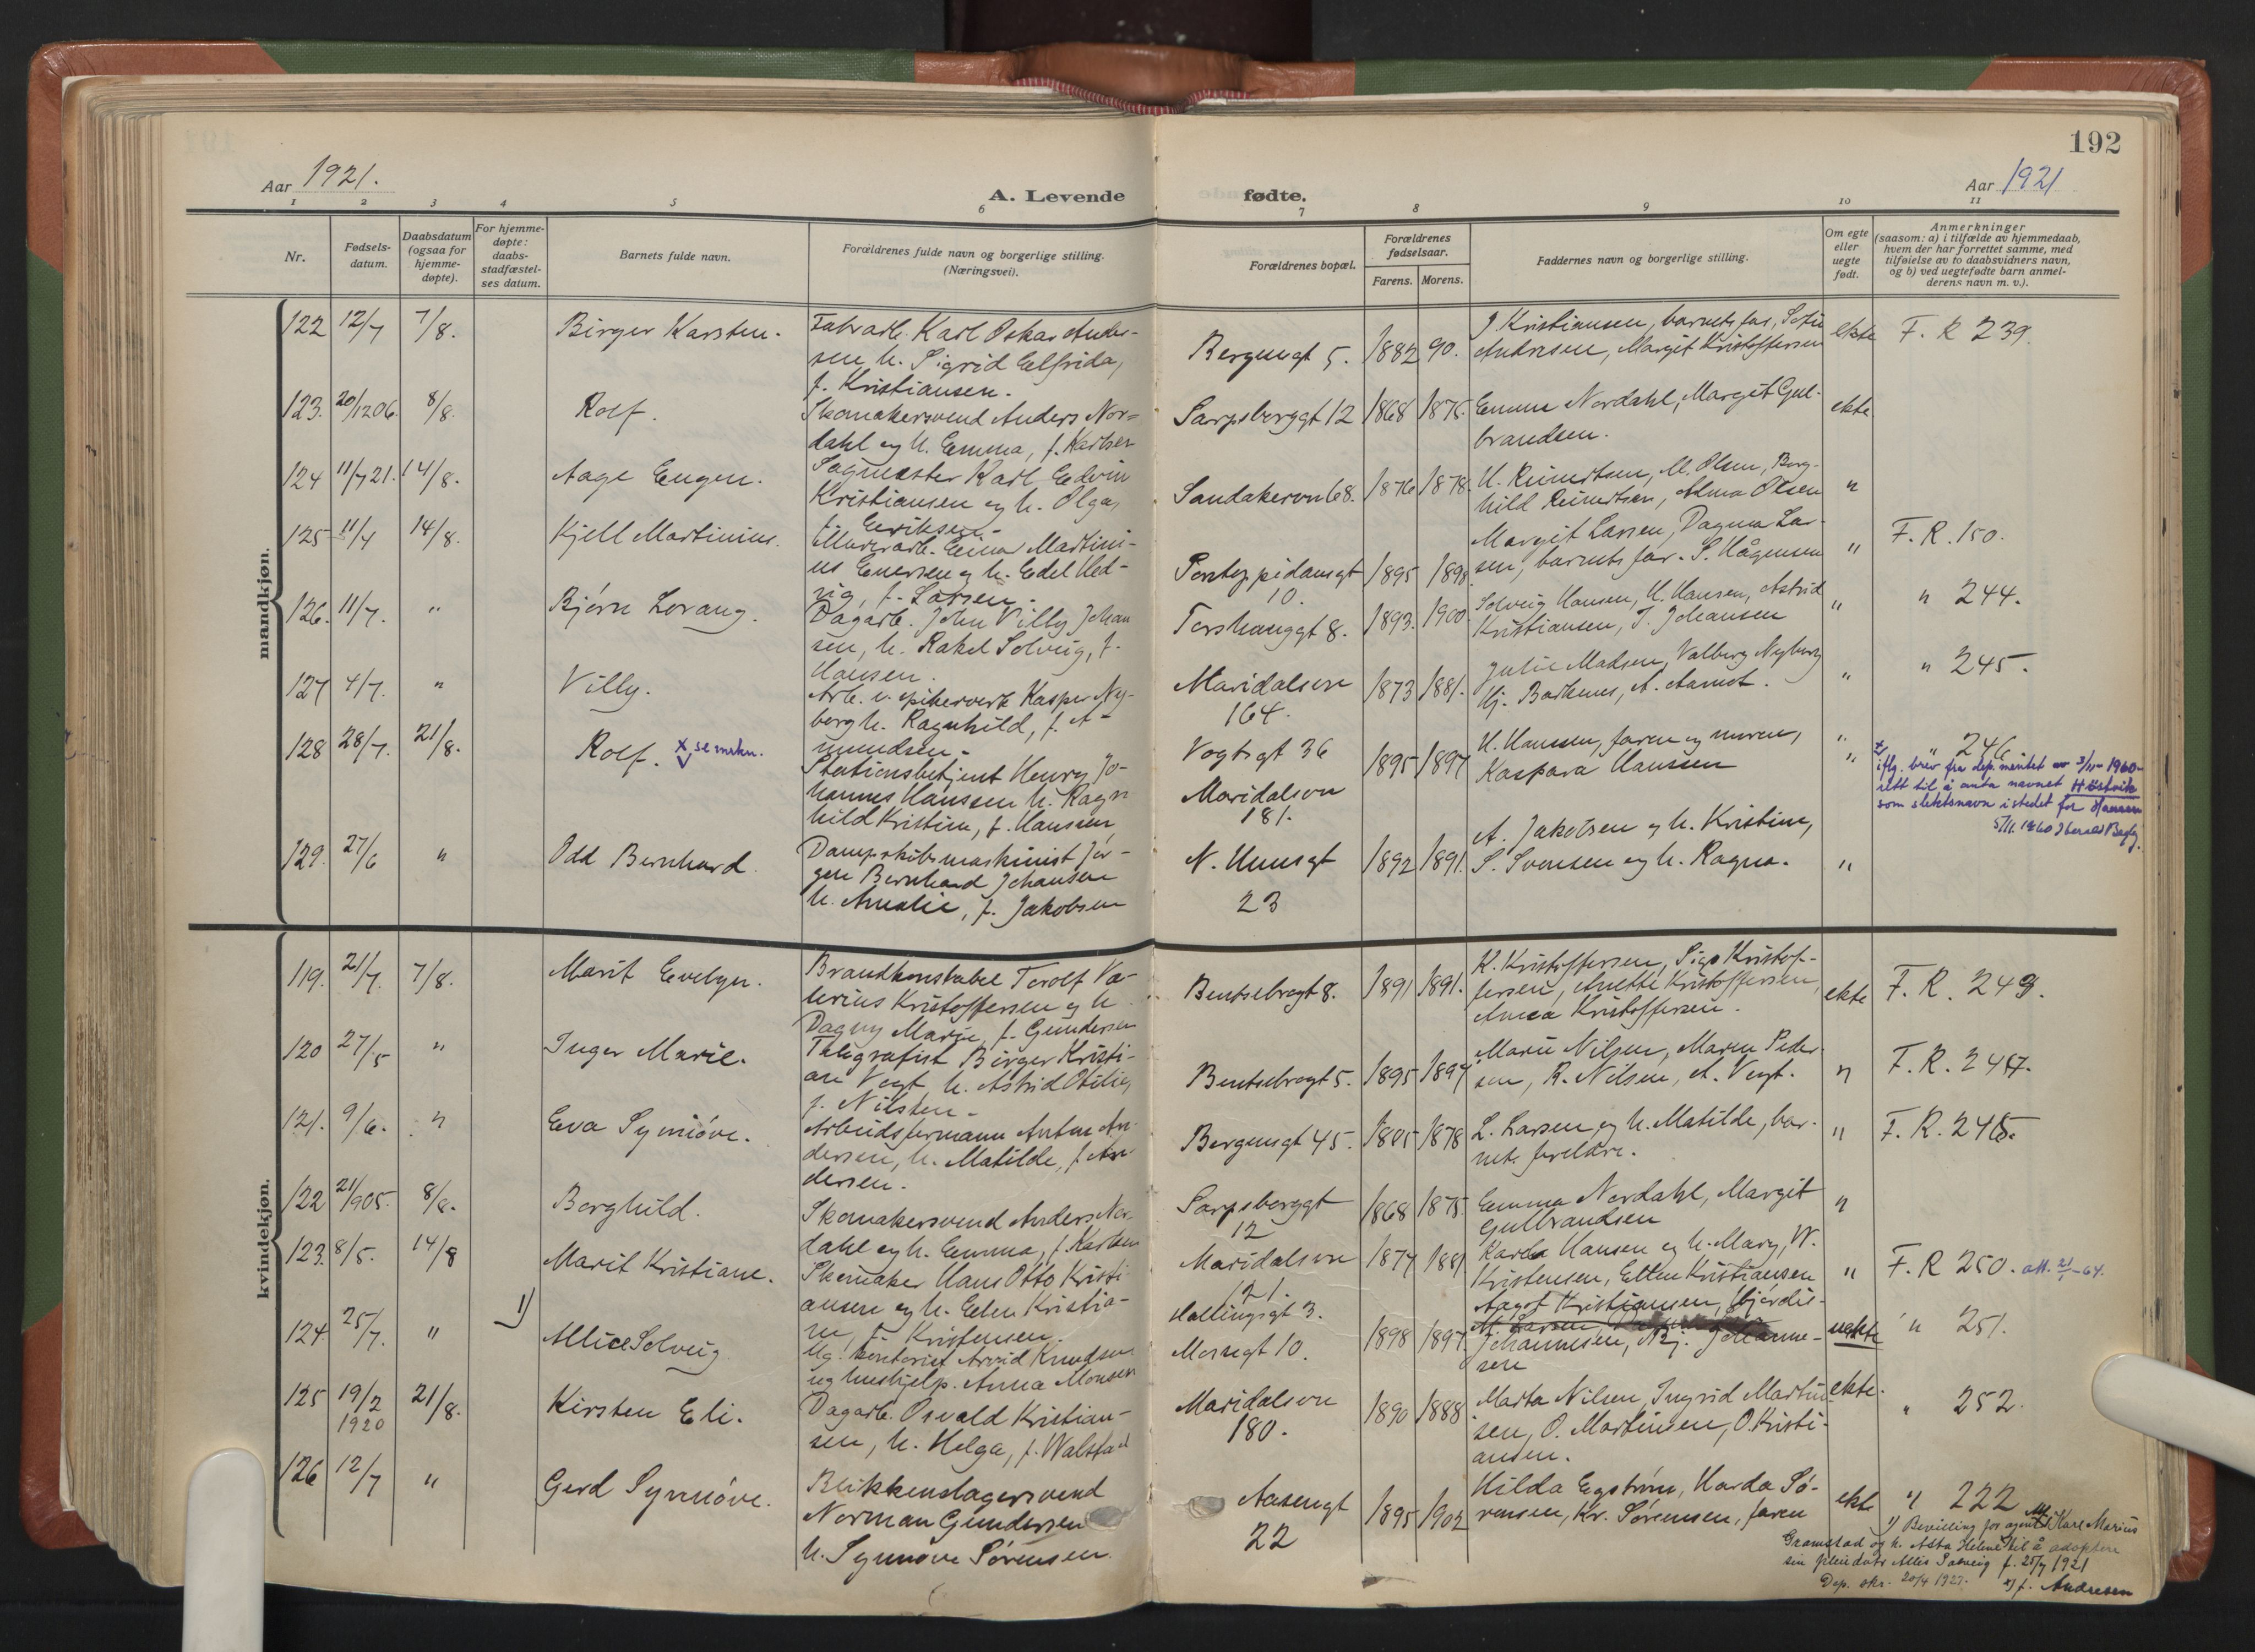 192
Aar 1921.
A. Levende
fødte.
Aar 1921
1 2 3 4 5 6 7 8 9 10 11
Nr.
Fødsels-
datum.
Daabsdatum
(ogsaa for
hjemme-
døpte).
For hjemme-
døpte:
daabs-
stadfæstel-
ses datum.
Barnets fulde navn.
Forældrenes fulde navn og borgerlige stilling.
(Næringsvei).
Forældrenes bopæl.
Forældrenes
fødselsaar.
Farens. Morens.
Faddernes navn og borgerlige stilling.
Om egte
eller
uegte
født.
Anmerkninger
(saasom: a) i tilfælde av hjemmedaab,
hvem der har forrettet samme, med
tilføielse av to daabsvidners navn,
og b) ved uegtefødte barn anmel-
derens navn m. v.).
mandkjøn.
122 12/7 7/8. Birger Karsten.
Fabrarb. Karl Oskar Ander-
sen h. Sigrid Elfrida,
f. Kristiansen.
Bergensgt 5. 1882 90.
J Kristiansen, barnets far, Sofie
Andresen, Margit Kristoffersen
ekte F. R 239.
123. 20/12 06. 8/8. Rolf.
Skomakersvend Anders Nor-
dahl og h. Emma, f. Karlsen
Sarpsborggt 12 1868 1875.
Emma Nordahl, Margit Gul-
brandsen.
ekte
124 11/7 21. 14/8. Aage Eugen.
Sagmester Karl Edvin
Kristiansen og h. Olga,
f. Eriksen.
Sandakervn 68. 1876 1878.
H. Reinertsen, M. Olsen, Borg-
hild Reinertsen, Alma Olsen
"
125 11/4 14/8. Kjell Martinius.
Murerarb. Einar Martini-
us Enersen og h. Edel Hed-
vig, f. Larsen.
Pontoppidansgt
10. 1895 1898
Margit Larsen, Dagna Lar-
sen, barnets far. S. Hågensen
" F. R. 150.
126. 11/7. " Bjørn Lorang.
Dagarb. John Villy Johan
sen, h. Rakel Solveig, f.
Hansen.
Torshauggt 8. 1893. 1900.
Solveig Hansen, H. Hansen, Astrid
Kristiansen, J. Johansen
" " 244.
127 4/7. " Villy.
Arb. v. spikerverk Kasper Ny-
berg h. Ragnhild, f. A-
mundsen.
Maridalsvn
164. 1873 1881.
Julie Madsen, Valborg Nyborg
Hj. , A. Aamot.
" " 245.
128 28/7. 21/8. Rolf. x se mrkn.
Stationsbetjent Henry Jo-
hannes Hansen h. Ragn
hild Kristine, f. Hansen
Vogtsgt 36
Maridalsvn
181. 1895 1897
H. Hansen, faren og moren,
Kaspara Hansen
" " 246
x iflg. brev fra dep.mentet av 3/11-1960-
rett til å anta navnet Høstvik
som slektsnavn istedet for Hansen
5/11.1960
129. 27/6 " Odd Bernhard.
Dampskibsmaskinist Jør-
gen Bernhard Johansen
h. Amalie, f. Jakobsen
N. Hemsgt
23 1892 1891.
A. Jakobsen og h. Kristine,
S. Svensen og h. Ragna.
"
kvindekjøn.
119. 21/7. 7/8. Marit Evelyn.
Brandkonstabel Torolf Va-
lerius Kristoffersen og h
Dagny Marie, f. Gundersen
Bentsebrogt 8. 1891 1891.
K. Kristoffersen, Sigr Kristof-
fersen, Anette Kristoffersen,
Anna Kristoffersen.
ekte F. R. 249.
120 27/5 " Inger Marie.
Telegrafist Birger Kristi-
an Vogt h. Astrid Otilie,
f. Nilsen.
Bentsebrogt 5. 1895 1897
Marie Nilsen, Maren Peder-
sen, R. Nilsen, A. Vogt.
" F. R. 247.
121. 9/6. " Eva Synnöve.
Arbeidsformann Anton An-
dersen, h. Matilde, f. An-
dersen.
Bergensgt 45. 1885 1878
L. Larsen og h. Matilde, bar-
nets foreldre.
" F. R. 248.
122 21/1905. 8/8. Borghild.
Skomakersvend Anders Nor-
dahl og h. Emma, f. Karlsen
Sarpsborggt
12 1868 1875
Emma Nordahl, Margit
Gulbrandsen
"
123. 8/5. 14/8 Marit Kristiane.
Skomaker Hans Otto Kristi
ansen og h. Ellen Kristia-
ne, f. Kristensen.
Maridalsvn
121. 1877 1881
Karl Hansen og h. Mary, W.
Kristensen, Ellen Kristiansen
" F. R 250. att. 21/1-64.
124. 25/7. " 1) Allice Solveig
Ug. kontorist Arvid Knudsen
ug hushjelp. Anna Monsen
Hallingsgt 3.
Mosseqt 10. 1898 1897.
Aagot Kristiansen, Hjördis
Johannesen, Bj. Johanne-
sen
uekte " 251.
125 19/2
1920 21/8. Kirsten Eli.
Dagarb. Osvald Kristian-
sen, h. Helga, f. Walstad
Maridalsvn
180. 1890 1888
Marta Nilsen, Ingrid Martin
sen, O. Martinsen, O. Kristi-
ansen.
ekte. " 252.
126 12/7 " Gerd Synnöve.
Blikkenslagersvend
Norman Gundersen
h. Synnøve Sørensen.
Aasengt
22 1895 1902
Hilda Egström, Harda Sö-
rensen, Kr. Sörensen, faren
ekte " 222
1) Bevilling for agent Karl Marius
Gramstad og h. Asta Helene til å adoptere
sin pleiedatr Allis Solveig f. 25/7 1921
Dep. skr. 20/4 1927. x) f. Andresen